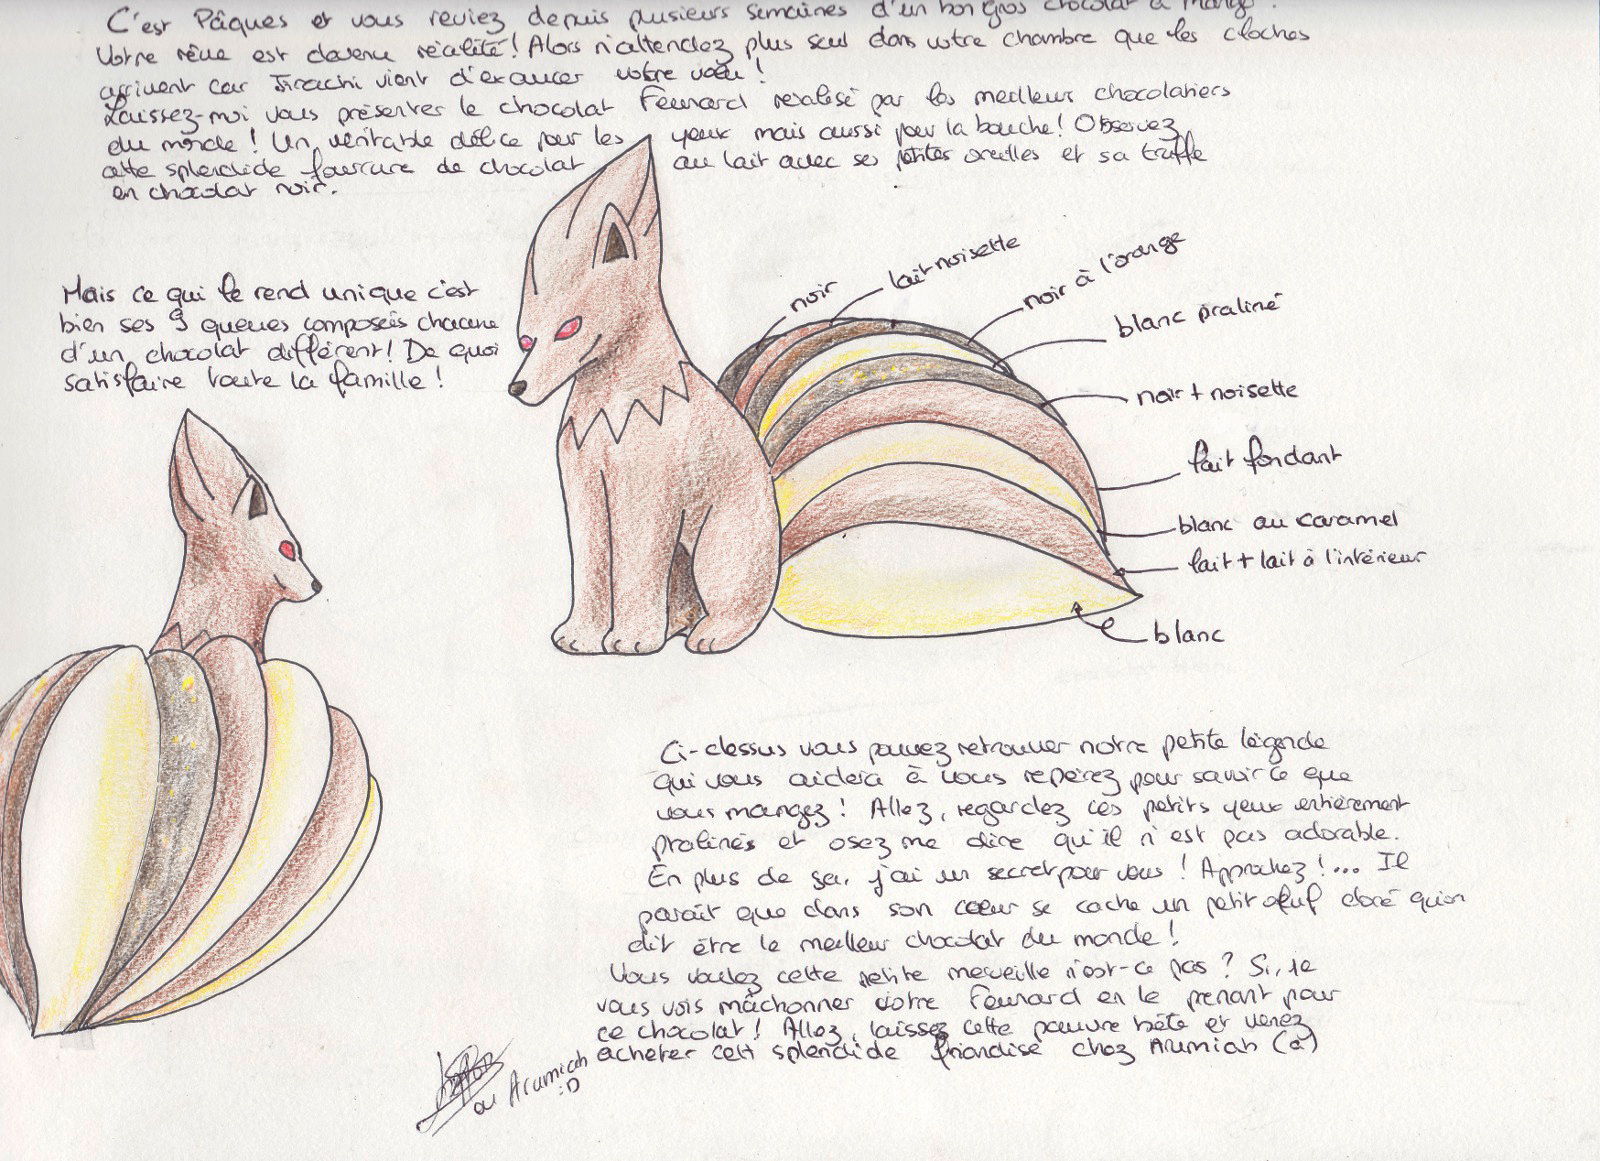 C'est Pâques et vous reviez depuis plusieurs semaines d'un bon gros chocolat à manger !
Votre rêve est devenu réalité ! Alors n'attendez plus seul dans votre chambre que les cloches
arrivent car Jirachi vient d'exaucer votre voeu !
Laissez-moi vous présenter le chocolat Feunard réalisé par les meilleur chocolatiers
du monde ! Un véritable délice pour les yeux mais aussi pour la bouche ! Observez
cette splendide fourrure de chocolat au lait avec ses petites oreilles et sa truffe
en chocolat noir.
Mais ce qui le rend unique c'est
bien ses 9 queues composées chacune
d'un chocolat différent ! De quoi
satisfaire toute la famille !
noir
lait noisette
noir à l'orange
blanc praliné
noir + noisette
lait fondant
blanc au caramel
lait + lait à l'intérieur
blanc
Ci-dessus vous pouvez retrouver notre petite légende
qui vous aidera à vous repérez pour savoir ce que
vous mangez ! Allez, regardez ces petits yeux entièrement
pralinés et osez me dire qu'il n'est pas adorable.
En plus de sa, j'ai un secret pour vous ! Approchez !... Il
parait que dans son coeur se cache un petit oeuf doré qu'on
dit être le meilleur chocolat du monde !
Vous voulez cette petite merveille n'est-ce pas ? Si, je
vous vois mâchonner votre Feunard en le prenant pour
ce chocolat ! Allez, laissez cette pauvre bête et venez
acheter cett splendide friandise chez Arumiah (a)
ou Arumiah
:D